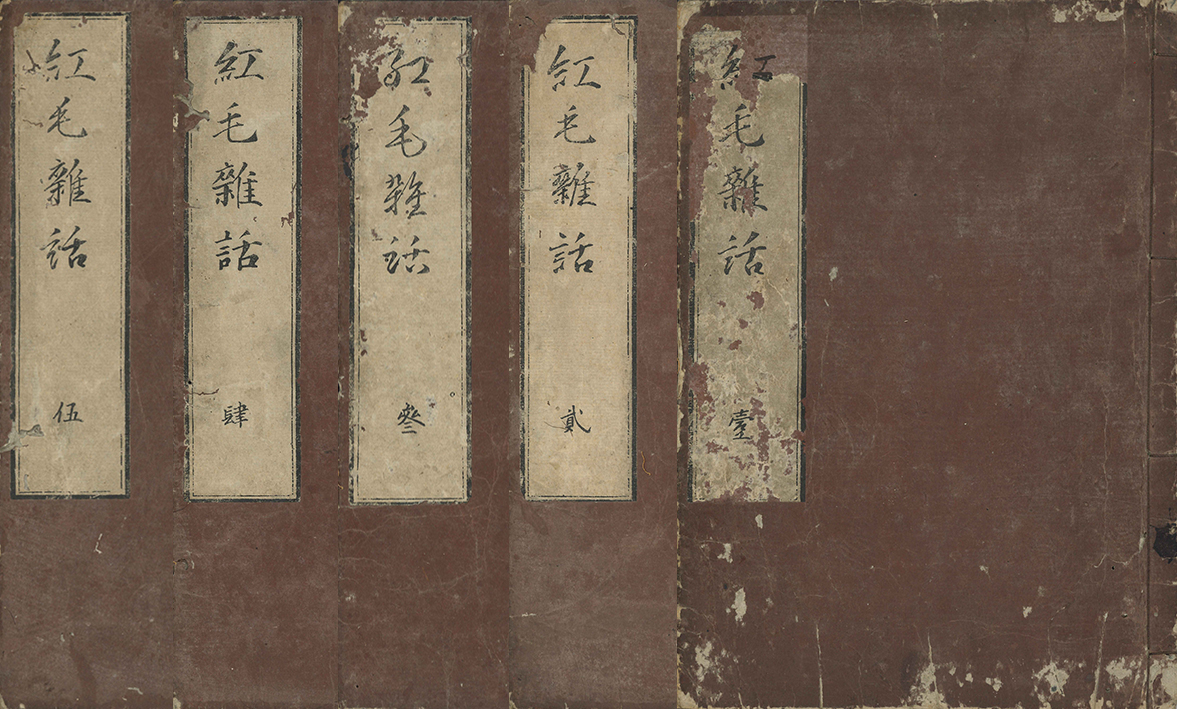 紅毛雜話
壹
紅毛雜話
貳
紅毛雜話
叄
紅毛雜話
肆
紅毛雜話
伍